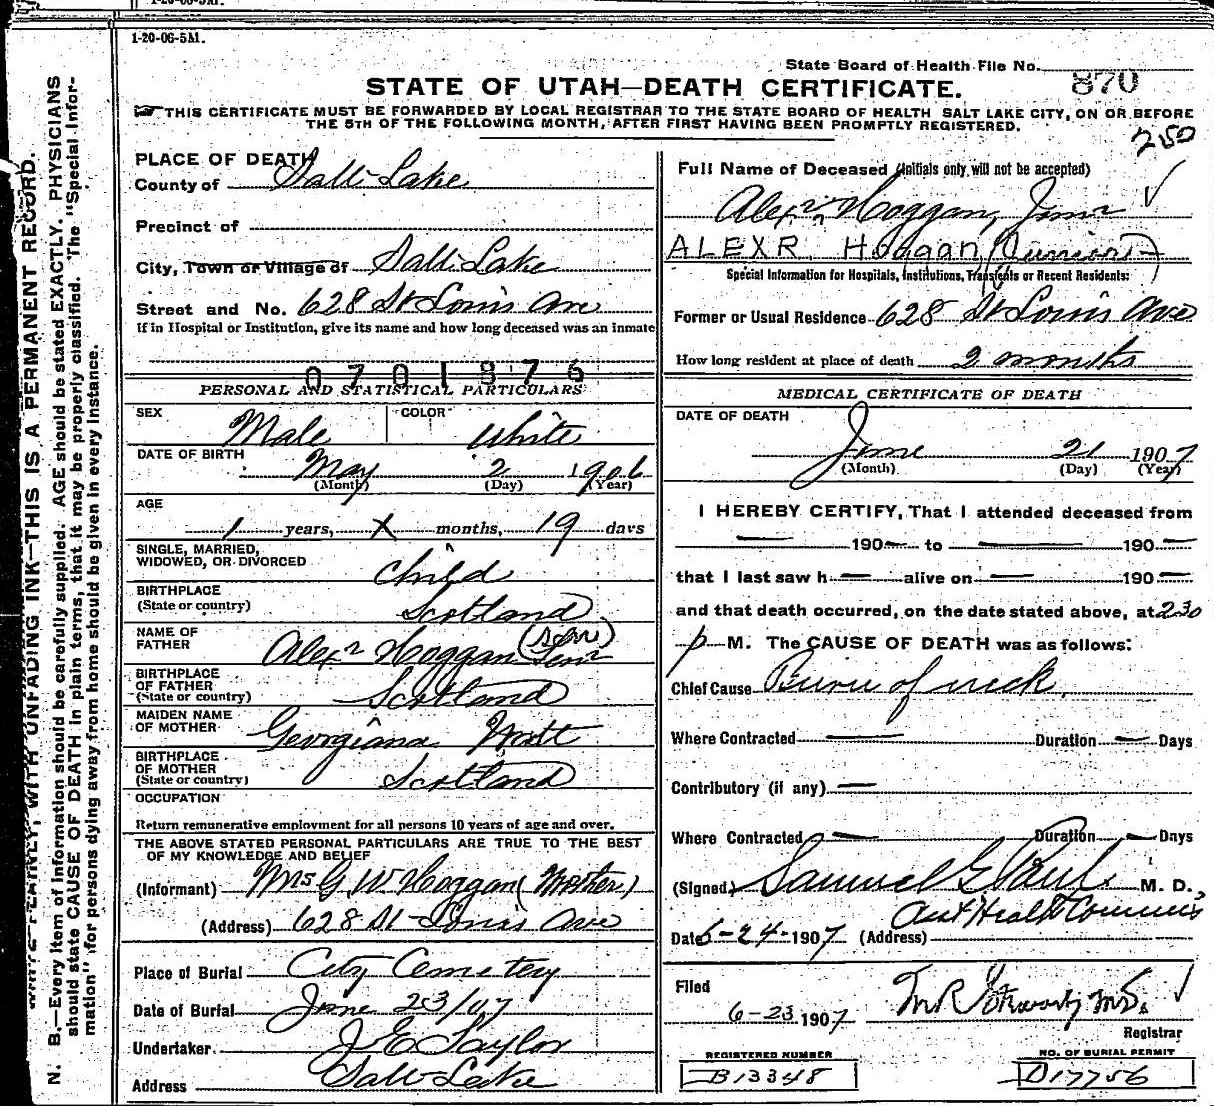 1-20-06-5M.
State Board of Health File No. 870
STATE OF UTAH—DEATH CERTIFICATE.
THIS CERTIFICATE MUST BE FORWARDED BY LOCAL REGISTRAR TO THE STATE BOARD OF HEALTH SALT LAKE CITY, ON OR BEFORE
THE 5TH OF THE FOLLOWING MONTH, AFTER FIRST HAVING BEEN PROMPTLY REGISTERED.
250
PLACE OF DEATH
County of Salt Lake
Precinct of
City, Town or Village of Salt Lake
Street and No. 628 St Louis Ave
If in Hospital or Institution, give its name and how long deceased was an inmate
0701876
PERSONAL AND STATISTICAL PARTICULARS
SEX Male COLOR White
DATE OF BIRTH May 2 1906
(Month) (Day) (Year)
AGE
1 years, X months, 19 days
SINGLE, MARRIED,
WIDOWED, OR DIVORCED Child
BIRTHPLACE
(State or country) Scotland
NAME OF
FATHER Alexr Hoggan Senr
BIRTHPLACE
OF FATHER
(State or country) Scotland
MAIDEN NAME
OF MOTHER Georgiana
BIRTHPLACE
OF MOTHER
(State or country) Scotland
OCCUPATION
Return remunerative employment for all persons 10 years of age and over.
THE ABOVE STATED PERSONAL PARTICULARS ARE TRUE TO THE BEST
OF MY KNOWLEDGE AND BELIEF
(Informant) Mrs G. W. Hoggan (Mother)
(Address) 628 St Louis Ave
Place of Burial City Cemetery
Date of Burial June 23/07
Undertaker J E Taylor
Address Salt Lake
Full Name of Deceased (Initials only will not be accepted)
Alexr Hoggan, Junr
ALEXR. Hoggan (Junior)
Special Information for Hospitals, Institutions, Transients or Recent Residents:
Former or Usual Residence 628 St Louis Ave
How long resident at place of death 2 months
MEDICAL CERTIFICATE OF DEATH
DATE OF DEATH
June 21 1907
(Month) (Day) (Year)
I HEREBY CERTIFY, That I attended deceased from
— 190— to — 190—
that I last saw h— alive on — 190—
and that death occurred, on the date stated above, at 2 30
p M. The CAUSE OF DEATH was as follows:
Chief Cause Burn of neck,
Where Contracted — Duration — Days
Contributory (if any) —
Where Contracted — Duration — Days
(Signed) Samuel G Paul M. D.,
Asst Health Commis
Date 6-24-1907 (Address)
Filed
6-23 1907 M.D.
Registrar
REGISTERED NUMBER
B13348
NO. OF BURIAL PERMIT
D17756
WITH UNFADING INK—THIS IS A PERMANENT RECORD.
N. B.—Every item of Information should be carefully supplied. AGE should be stated EXACTLY. PHYSICIANS
should state CAUSE OF DEATH in plain terms, that it may be properly classified. The "Special Infor-
mation" for persons dying away from home should be given in every instance.